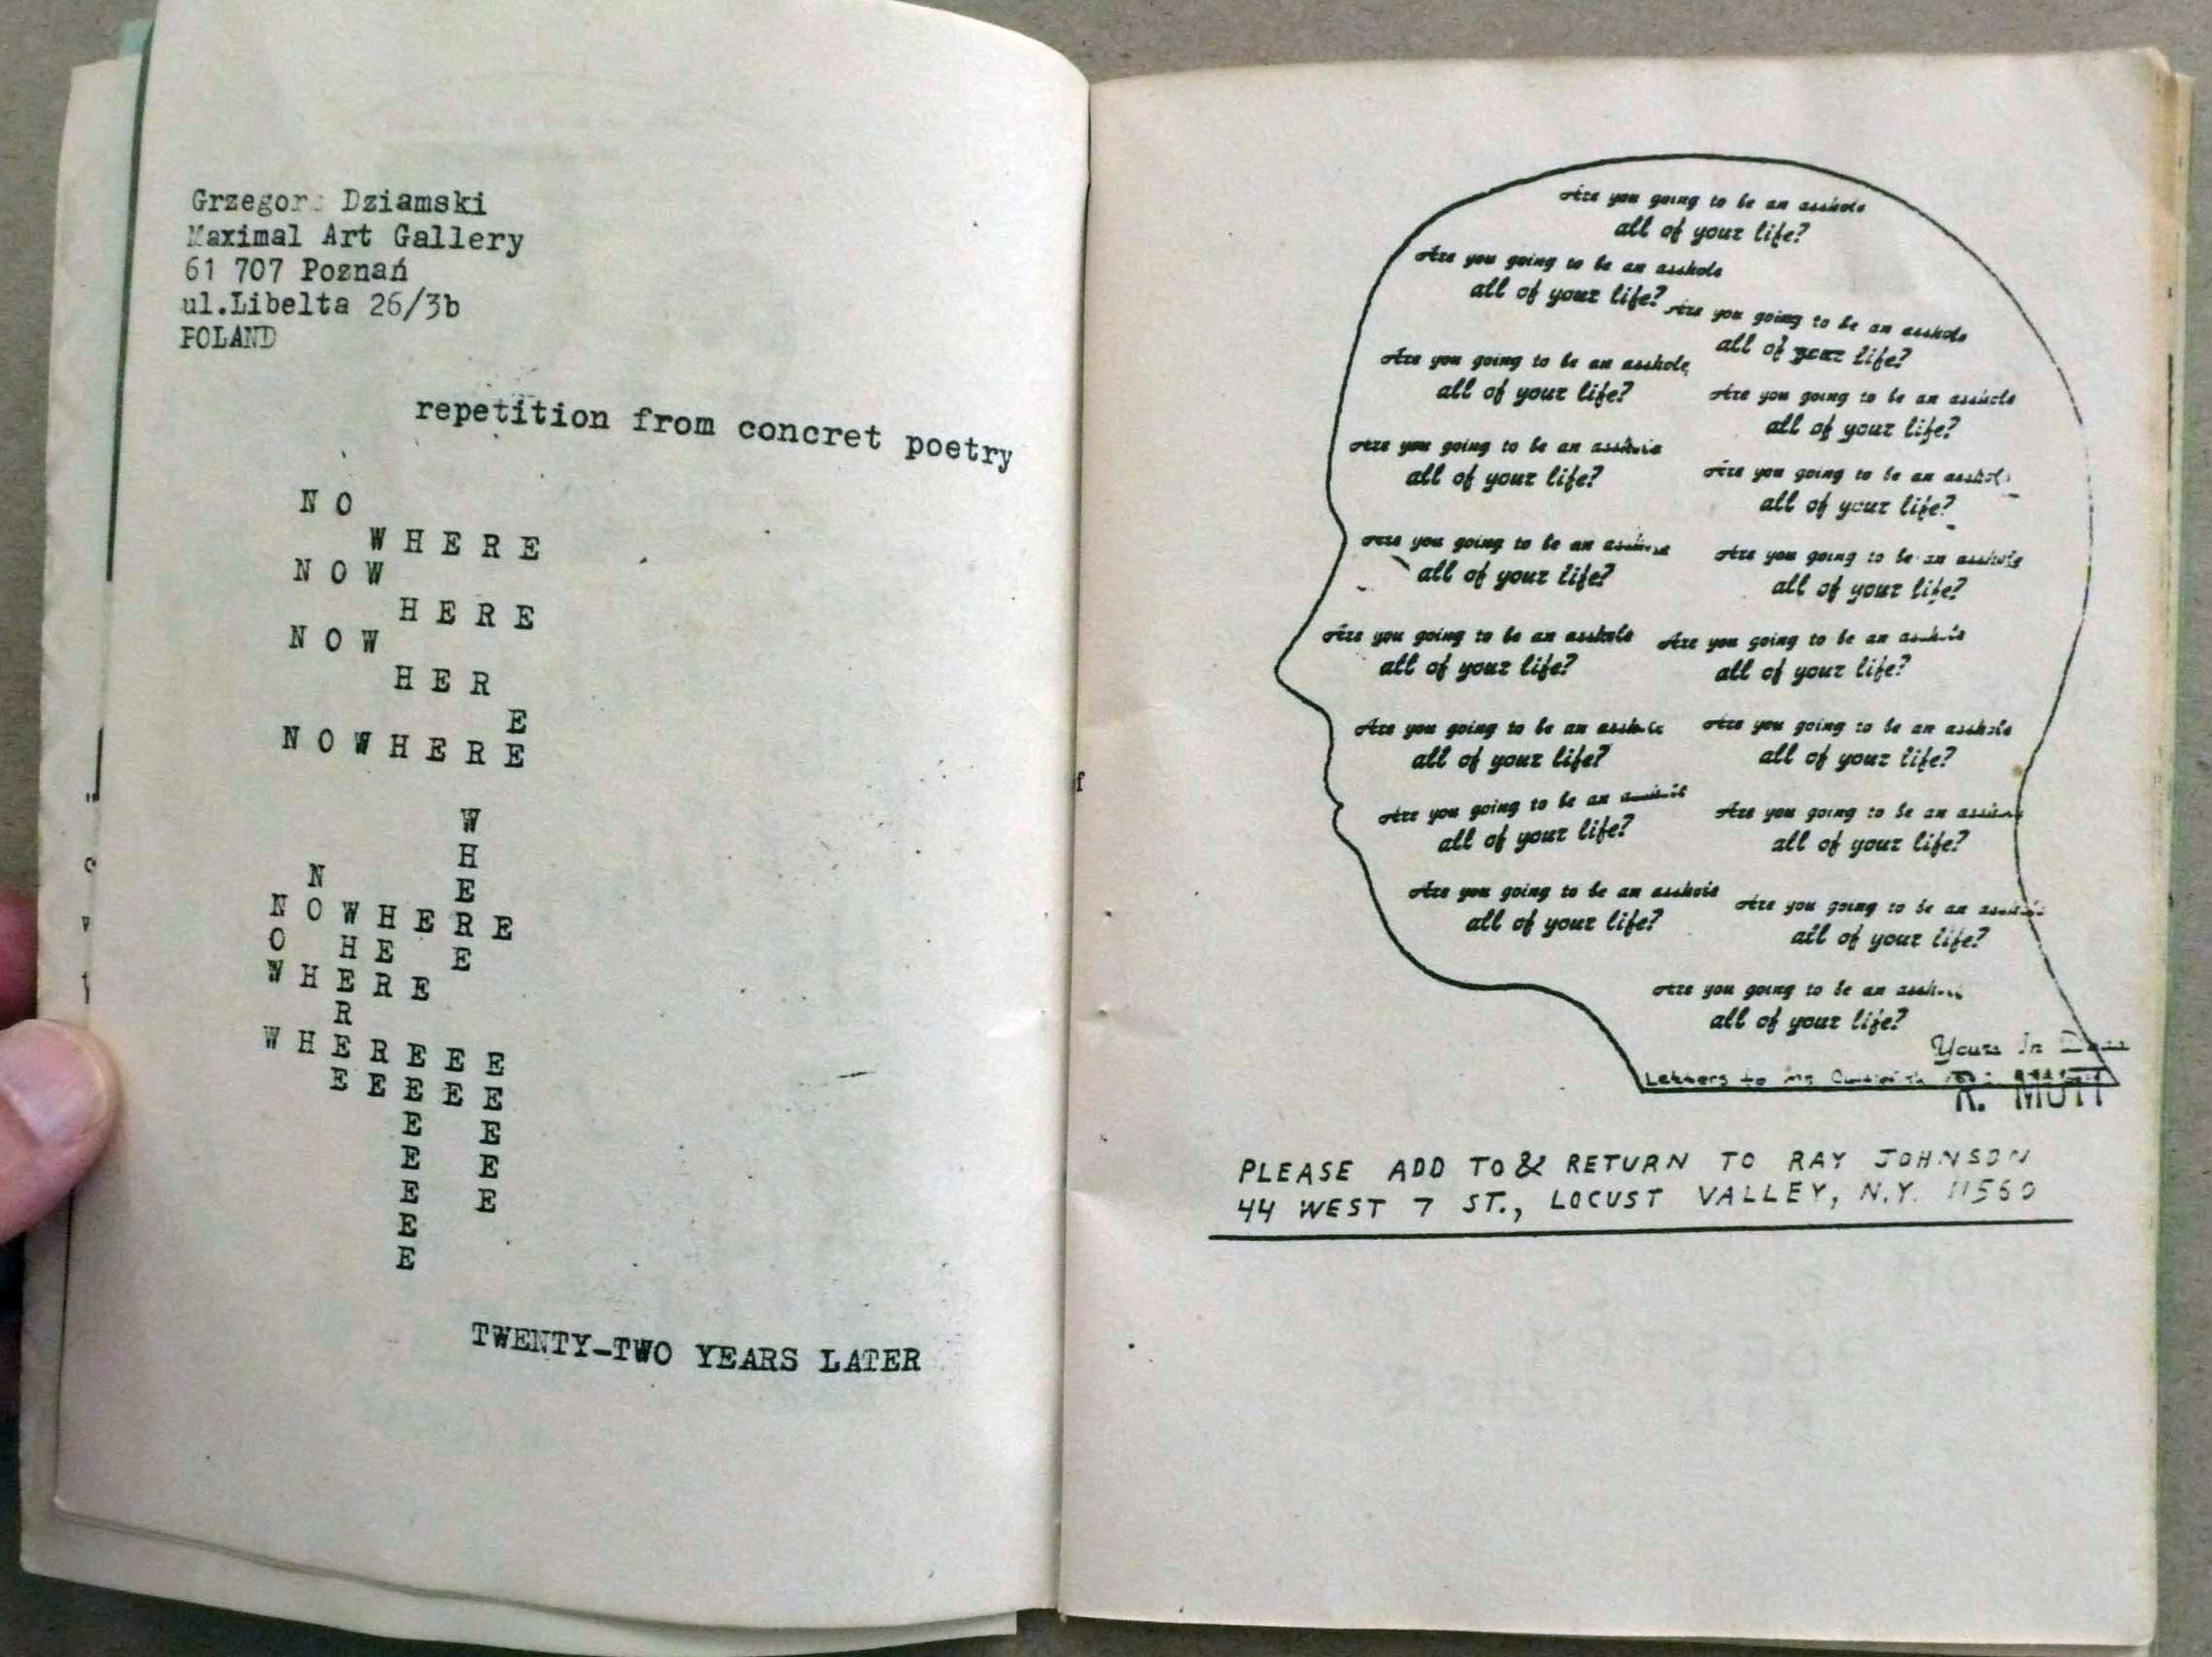 Grzegorz Dziamski
Maximal Art Gallery
61 707 Poznań
ul.Libelta 26/3b
POLAND
repetition from concret poetry
N O
W H E R E
N O W
H E R E
N O W
H E R
E
N O W H E R E
W
H
N E
N O W H E R E
O H E E
W H E R E
R
W H E R E E E
E E E E E
E E
E E
E E
E
E
TWENTY-TWO YEARS LATER
f
Are you going to be an asshole
all of your life?
Are you going to be an asshole
all of your life?
Are you going to be an asshole
all of your life?
Are you going to be an asshole
all of your life?
Are you going to be an asshole
all of your life?
Are you going to be an asshole
all of your life?
Are you going to be an asshole
all of your life?
Are you going to be an asshole
all of your life?
Are you going to be an asshole
all of your life?
Are you going to be an asshole
all of your life?
Are you going to be an asshole
all of your life?
Are you going to be an asshole
all of your life?
Are you going to be an asshole
all of your life?
Are you going to be an asshole
all of your life?
Are you going to be an asshole
all of your life?
Are you going to be an asshole
all of your life?
Are you going to be an asshole
all of your life?
Are you going to be an asshole
all of your life?
Yours In
Letters to
R. MUTT
PLEASE ADD TO & RETURN TO RAY JOHNSON
44 WEST 7 ST., LOCUST VALLEY, N.Y. 11560